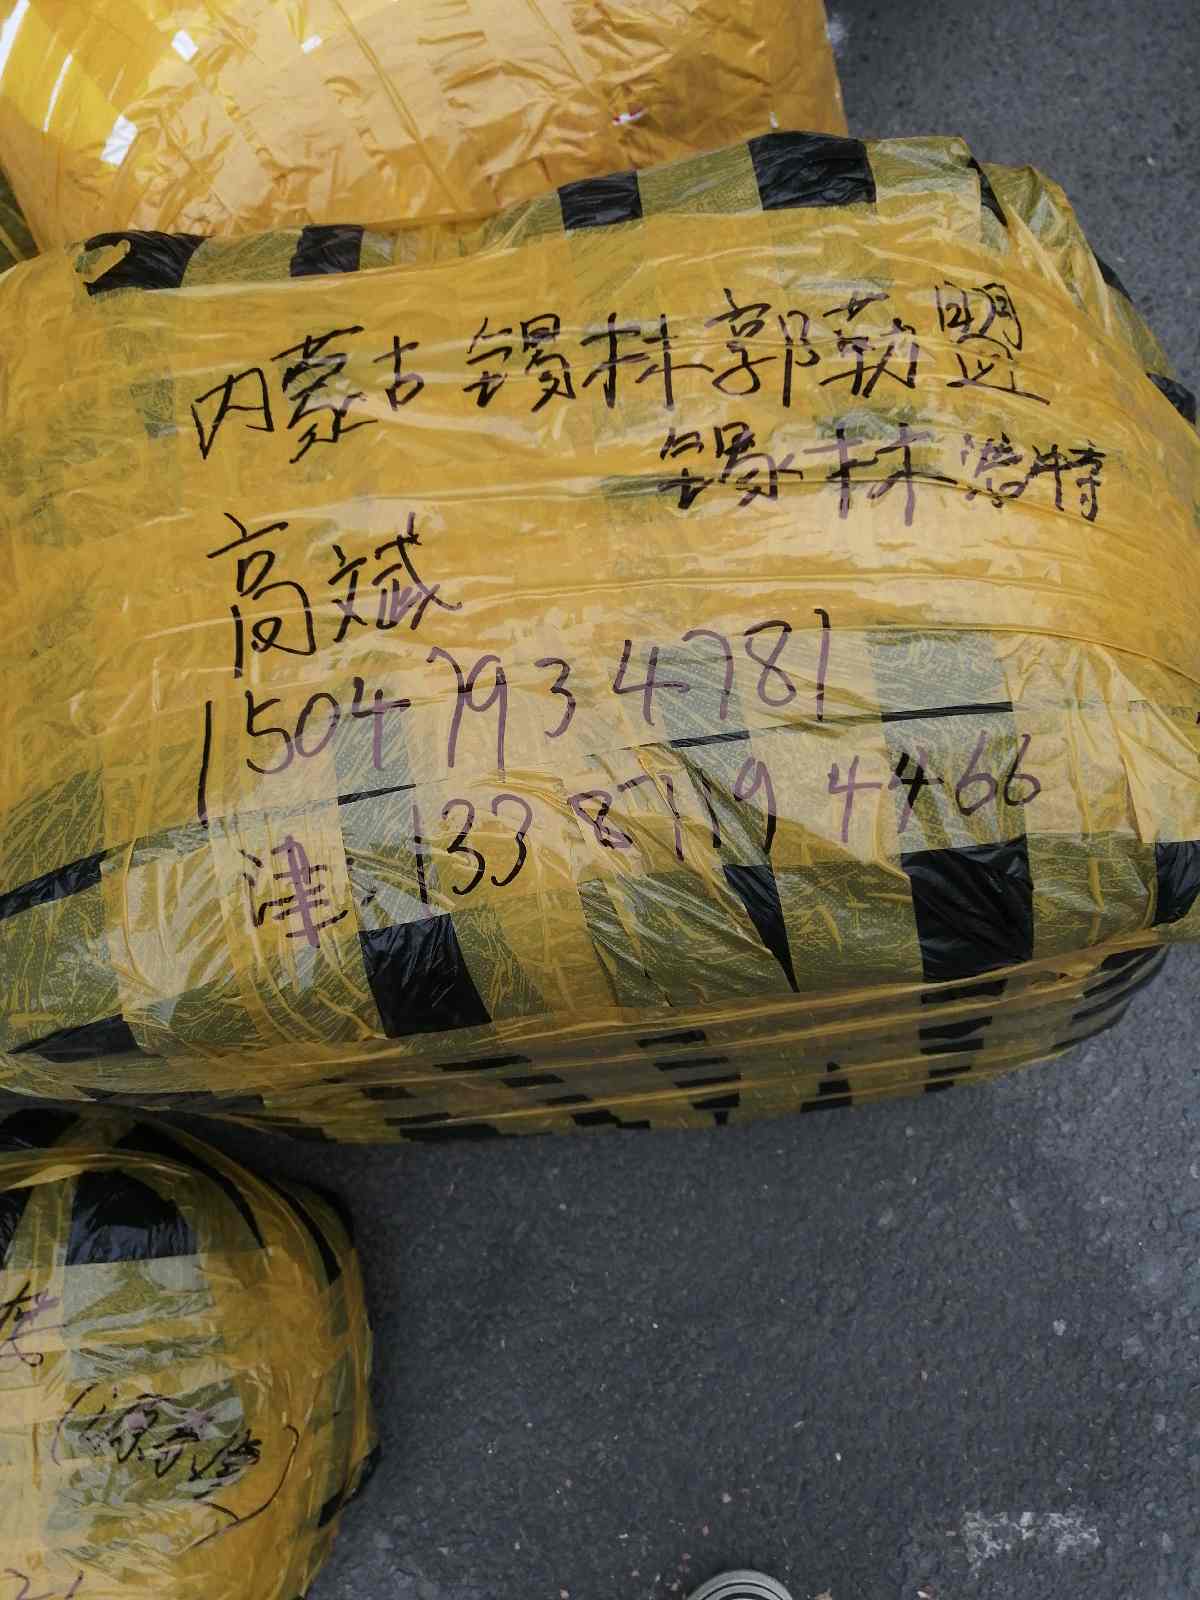 内蒙古锡林郭勒盟
锡林浩特
高斌
15047934781
津:13387194466
21